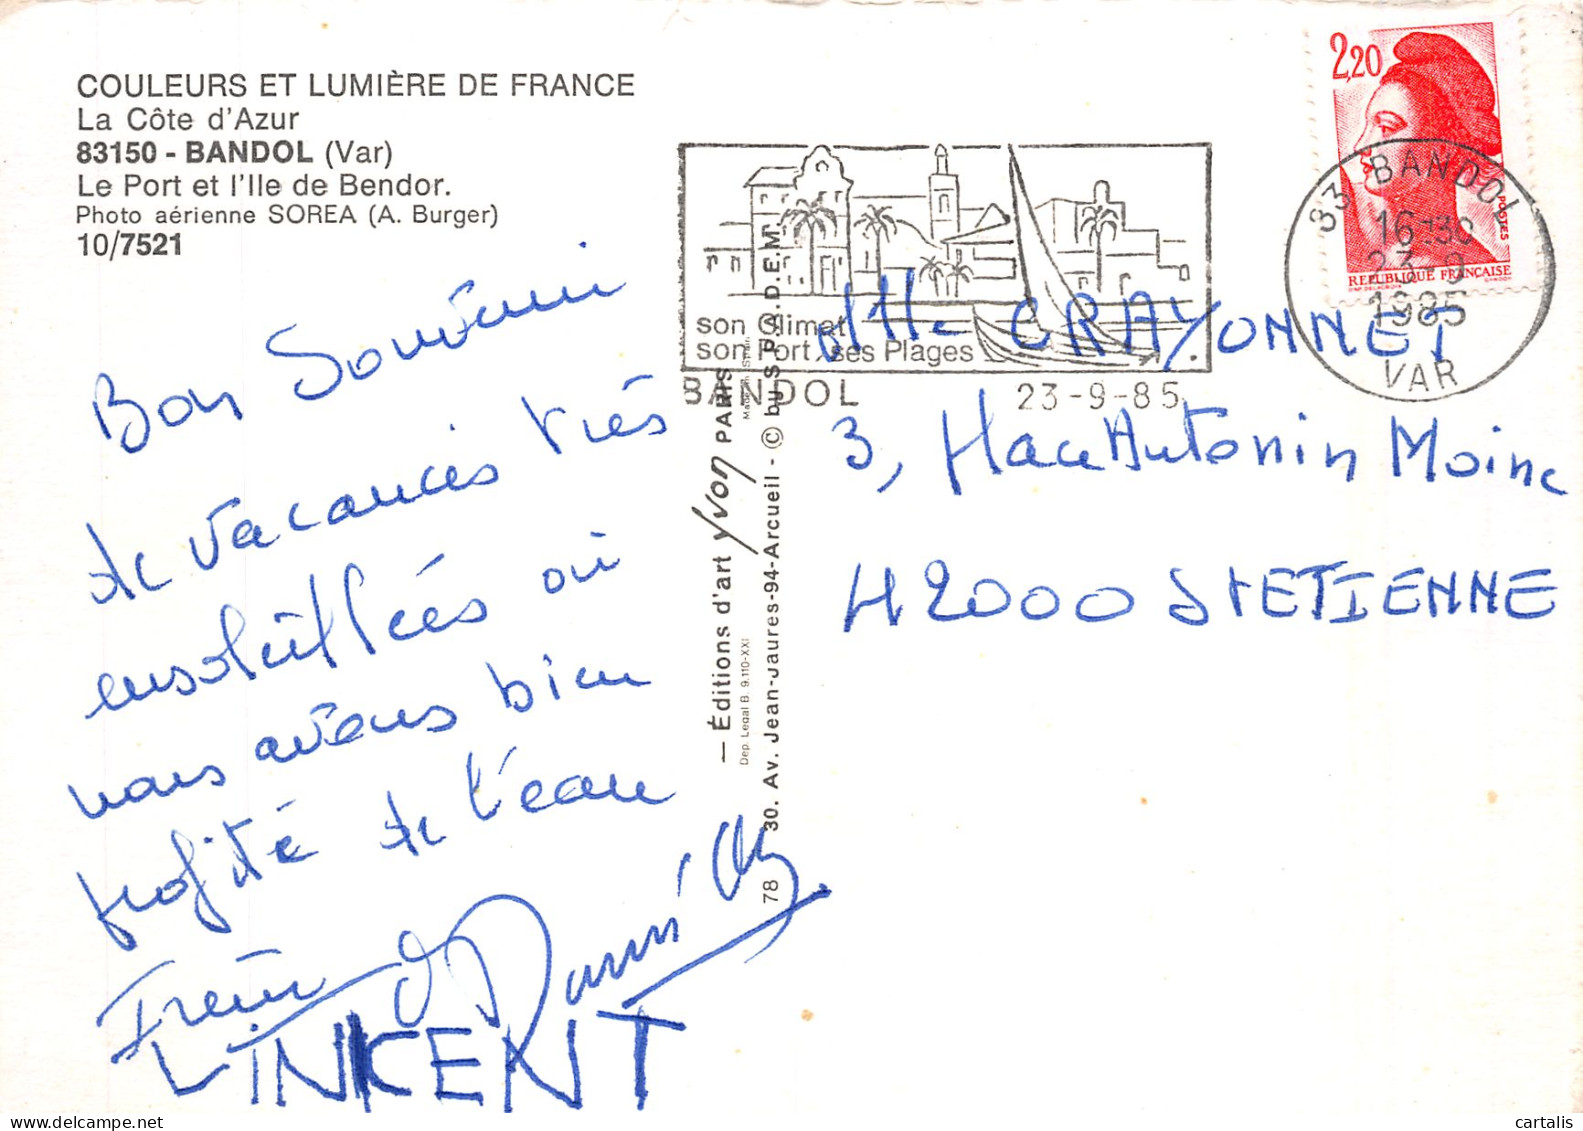 COULEURS ET LUMIÈRE DE FRANCE
La Côte d'Azur
83150 - BANDOL (Var)
Le Port et l'Ile de Bendor.
Photo aérienne SOREA (A. Burger)
10/7521
Bon Souvenir
de vacances très
ensoleillées où
nous avons bien
profité de l'eau
VINCENT
— Éditions d'art yvon PARIS
Dep. Legal B. 9.110-XXI
78 30. Av. Jean-Jaures-94-Arcueil - © by S.P.A.D.E.M.
son Climat
son Port, ses Plages
BANDOL 23-9-85
2,20
POSTES
REPUBLIQUE FRANÇAISE
83 BANDOL
16-30
23-9
1985
VAR
Mlle CRAYONNET
3, Place Antonin Moine
42000 St ETIENNE
cartalis